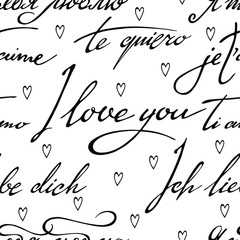 люблю
te quiero
aime
je t'
I love you
mo
ti a
be dich
Ich lie